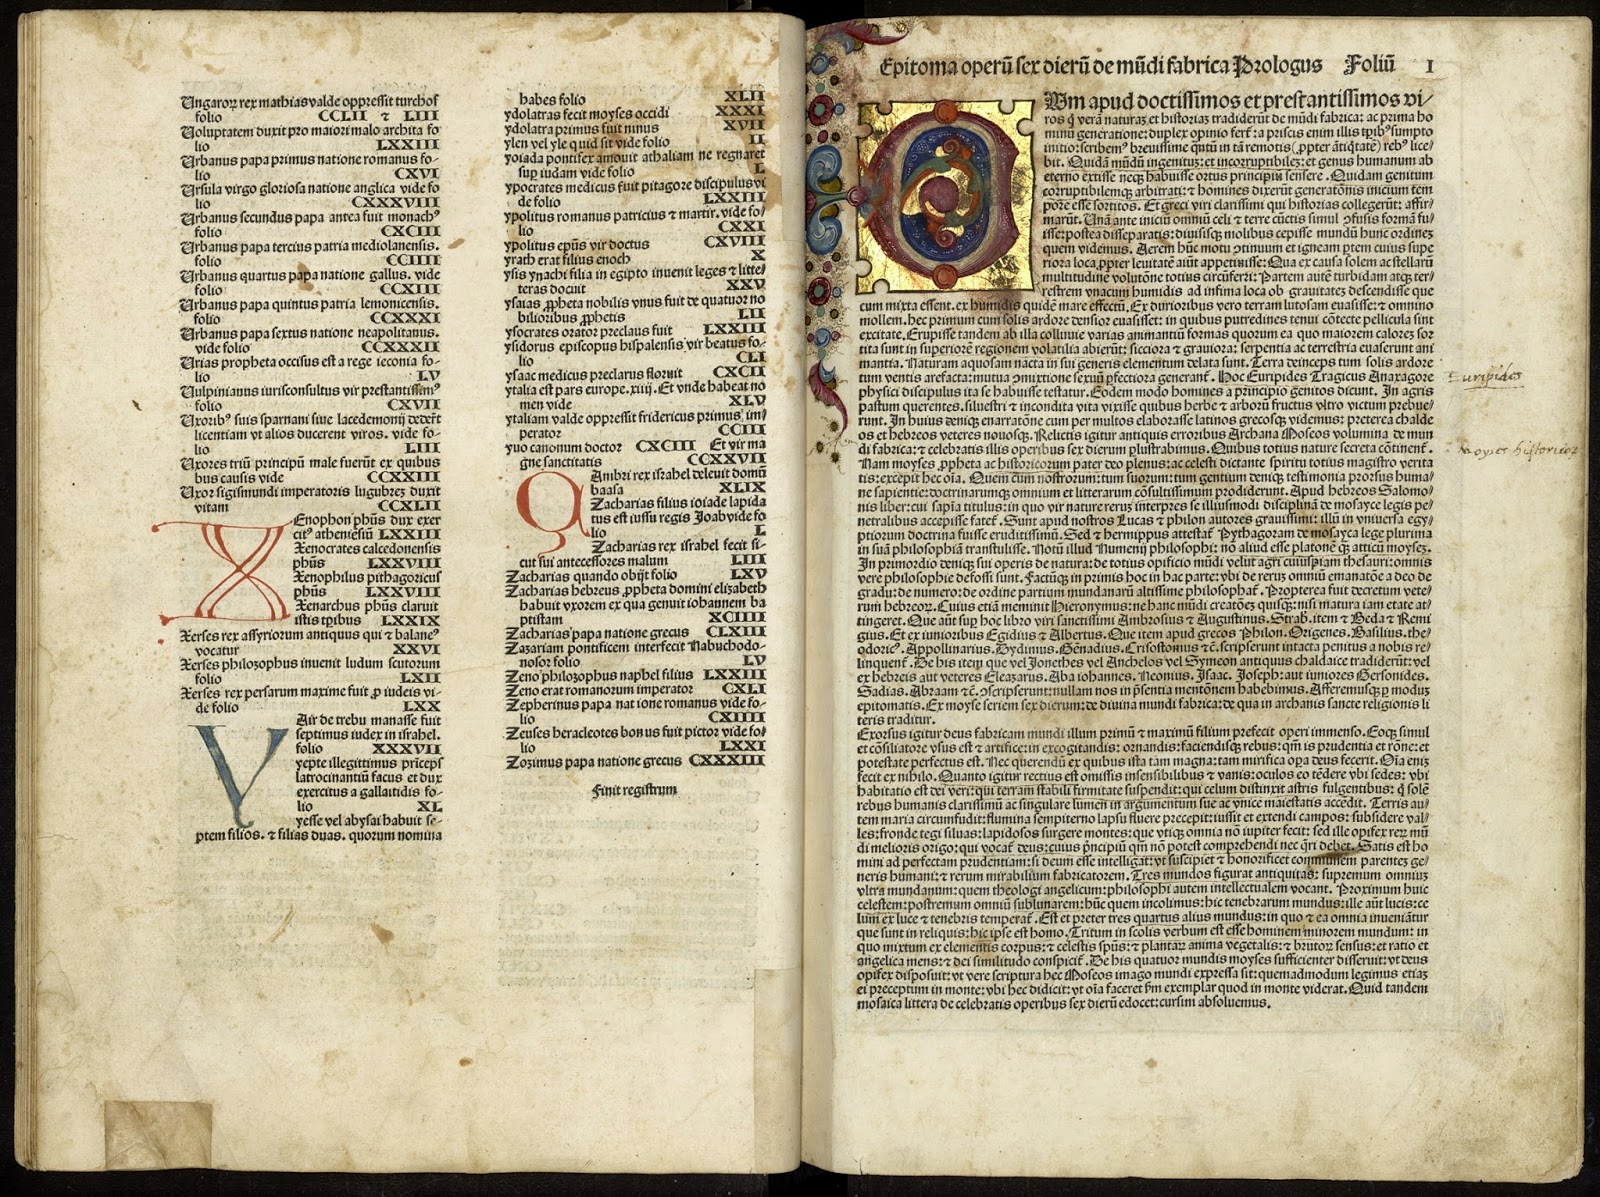 Ungaroꝝ rex mathias valde oppressit turchos
folio CCLII ⁊ LIII
Voluptatem duxit pro maiori malo archita fo
lio LXXIII
Urbanus papa primus natione romanus fo-
lio CXVI
Ursula virgo gloriosa natione anglica vide fo
lio CXXXVIII
Urbanus secundus papa antea fuit monachꝰ
folio CXCIII
Urbanus papa tercius patria mediolanensis.
folio CCIIII
Urbanus quartus papa natione gallus. vide
folio CCXIII
Urbanus papa quintus patria lemonicensis.
folio CCXXXI
Urbanus papa sextus natione neapolitanus.
vide folio CCXXXII
Urias propheta occisus est a rege ieconia fo-
lio LV
Vulpinianus iurisconsultus vir prestantissimꝰ
folio CXVII
Vxoribꝰ suis sparnani siue lacedemonij dederūt
licentiam vt alios ducerent viros. vide fo-
lio LIII
Vxores triū principū male fuerūt ex quibus
bus causis vide CCXXIII
Vxor sigismundi imperatoris lugubrez duxit
vitam CCXLII
XEnophon phūs dux exer
citꝰ atheniēsiū LXXIII
Xenocrates calcedonensis
phūs LXXVIII
Xenophilus pithagoricus
phūs LXXVIII
Xenarchus phūs claruit
istis tꝑibus LXXIX
Xerses rex assyriorum antiquus qui ⁊ balaneꝰ
vocatur XXVI
Xerses philozophus inuenit ludum scutorum
folio LXII
Xerses rex persarum maxime fuit ꝓ iudeis vi-
de folio LXX
YAir de trebu manasse fuit
septimus iudex in israhel.
folio XXXVII
yepte illegittimus prīceps
latrocinantiū facus et dux
exercitus a gallaitidis fo-
lio XL
yesse vel abysai habuit se-
ptem filios. ⁊ filias duas. quorum nomina
habes folio XLII
ydolatras fecit moyses occidi XXXI
ydolatra primus fuit ninus XVII
ylen vel yle quid sit vide folio II
yoiada pontifex amouit athaliam ne regnaret
suꝑ iudam vide folio L
ypocrates medicus fuit pitagore discipulus vi
de folio LXXIII
ypolitus romanus patricius ⁊ martir. vide fo-
lio CXXI
ypolitus epūs vir doctus CXVIII
yrath erat filius enoch X
ysis ynachi filia in egipto inuenit leges ⁊ litte-
teras docuit XXV
ysaias ꝓpheta nobilis vnus fuit de quatuor no
bilioribus ꝓphetis LII
ysocrates orator preclaus fuit LXXIII
ysidorus episcopus hispalensis vir beatus fo-
lio CLI
ysaac medicus preclarus floruit CXCII
ytalia est pars europe. xiij. Et vnde habeat no
men vide XLV
ytaliam valde oppressit fridericus primus im-
perator CCIII
yuo canonum doctor CXCIII Et vir ma
gne sanctitatis CCXXVII
ZAmbri rex israhel deleuit domū
baasa XLIX
Zacharias filius ioiade lapida
tus est iussu regis Ioab vide fo
lio L
Zacharias rex israhel fecit si-
cut sui antecessores malum LIII
Zacharias quando obijt folio LXV
Zacharias hebreus ꝓpheta domini elizabeth
habuit vxorem ex qua genuit iohannem ba
ptistam XCIIII
Zacharias papa natione grecus CLXIII
Zazariam pontificem interfecit Nabuchodo-
nosor folio LV
Zeno philozophus naphel filius LXXIII
Zeno erat romanorum imperator CXLI
Zepherinus papa nat ione romanus vide fo-
lio CXIIII
Zeuses heracleotes bon us fuit pictor vide fo-
lio LXXI
Zozimus papa natione grecus CXXXIII
Finit registrum
Epitoma operū sex dierū de mūdi fabrica Prologus Foliū I
CUm apud doctissimos et prestantissimos vi-
ros q̄ verā naturaz et historiaz tradiderūt de mūdi fabrica: ac prima ho
minū generatione: duplex opinio ferť: a priscis enim illis tꝑibꝰ sumpto
initio: scribemꝰ breuissime quātū in tā remotis (ꝓpter ātiqtatē) rebꝰ lice-
bit. Quidā mūdū ingenituz: et incorruptibilez: et genus humanum ab
eterno extisse necqꝫ habuisse ortus principiū sensere. Quidam genitum
corruptibilemqꝫ arbitrati: ⁊ homines dixerūt generatōnis inicium tem
pore esse sortitos. Et greci viri clarissimi qui historias collegerūt: affir-
marūt. Unā ante iniciū omniū celi ⁊ terre cūctis simul ꝯfusis formā fu-
isse: postea disseparatis: diuisisqꝫ molibus cepisse mundū hunc ordinez
quem videmus. Aerem hūc motu ꝯtinuum et igneam ptem cuius supe
riora loca ꝓpter leuitatē aiūt appetiuisse: Qua ex causa solem ac stellarū
multitudine volutōne totius circūferri: Partem autē turbidam atqꝫ ter-
restrem vnacum humidis ad infima loca ob grauitatez descendisse que
cum mixta essent. ex humidis quidē mare effectū. Ex durioribus vero terram lutosam euasisse: ⁊ omnino
mollem. hec primum cum solis ardore densior euasisset: in quibus putredines tenui cōtecte pellicula sint
excitate. Erupisse tandem ab illa colluuie varias animantiū formas quorum ea quo maiorem calorez sor
tita sunt in superiorē regionem volatilia abierūt: sicciora ⁊ grauiora: serpentia ac terrestria euaserunt ani
mantia. Naturam aquosam nacta in sui generis elementum delata sunt. Terra deinceps tum solis ardore
tum ventis arefacta: mutua ꝯmixtione sexuū ꝑfectiora generanť. Hoc Euripides Tragicus Anaxagore
physici discipulus ita se habuisse testatur. Eodem modo homines a principio genitos dicunt. In agris
pastum querentes. siluestri ⁊ incondita vita vixisse quibus herbe ⁊ arborū fructus vltro victum prebue-
runt. In huius deniqꝫ enarratōne cum per multos elaborasse latinos grecosqꝫ videmus: preterea chalde
os et hebreos veteres nouosqꝫ. Relictis igitur antiquis erroribus Archana Moseos volumina de mun
di fabrica: ⁊ celebratis illis operibus sex dierum ꝑlustrabimus. Quibus totius nature secreta cōtinenť.
Nam moyses ꝓpheta ac historicorum pater deo plenus: ac celesti dictante spiritu totius magistro verita
tis: excepit hec oīa. Quem cum nostrorum: tum suorum: tum gentium deniqꝫ testimonia prorsus huma-
ne sapientie: doctrinarumqꝫ omnium et litterarum cōsultissimum prodiderunt. Apud hebreos Salomo-
nis liber: cui sapīa titulus: in quo vir nature reruz interpres se illiusmodi disciplinā de mosayce legis pe-
netralibus accepisse fateť. Sunt apud nostros Lucas ⁊ philon autores grauissimi: illū in vniuersa egy-
ptiorum doctrina fuisse eruditissimū. Sed ⁊ hermippus attestať Pythagoram de mosayca lege plurima
in suā philosophiā transtulisse. Notū illud Numenij philosophi: nō aliud esse platonē q̄ꝫ atticū moysez.
In primordio deniqꝫ sui operis de natura: de totius opificio mūdi velut agri cuiuspiam thesauri: omnis
vere philosophie defossi sunt. Factūqꝫ in primis hoc in hac parte: vbi de reruz omniū emanatōe a deo de
gradu: de numero: de ordine partium mundanarū altissime philosophať. Propterea fuit decretum vete-
rum hebreoꝝ. Cuius etiā meminit Hieronymus: ne hanc mūdi creatōez quisqꝫ: nisi matura iam etate at-
tingeret. Que aūt suꝑ hoc libro viri sanctissimi Ambrosius ⁊ Augustinus. Strab. item ⁊ Beda ⁊ Remi
gius. Et ex iunioribus Egidius ⁊ Albertus. Que item apud grecos Philon. Origenes. Basilius. the-
odoricꝰ. Appollinarius. Dydimus. Genadius. Crisostomus ⁊ ē. scripserunt intacta penitus a nobis re-
linquenť. De his item que vel Jonethes vel Anchelos vel Symeon antiquus chaldaice tradiderūt: vel
ex hebreis aut veteres Eleazarus. Aba iohannes. Neonius. Isaac. Joseph: aut iuniores Gersonides.
Sadias. Abraam ⁊ē. ꝯscripserunt: nullam nos in p̄sentia mentōnem habebimus. Afferemusqꝫ ꝑ moduz
epitomatis. Ex moyse seriem sex dierum: de diuina mundi fabrica: de qua in archanis sancte religionis li
teris traditur.
Exorsus igitur deus fabricam mundi illum primū ⁊ maximū filium prefecit operi immenso. Eoqꝫ simul
et cōsiliatore vsus est ⁊ artifice: in excogitandis: ornandis: faciendisqꝫ rebus: qm̄ is prudentia et rōne: et
potestate perfectus est. Nec querendū ex quibus ista tam magna: tam mirifica oꝑa deus fecerit. Oīa eniz
fecit ex nihilo. Quanto igitur rectius est omissis insensibilibus ⁊ vanis: oculos eo tēdere vbi sedes: vbi
habitatio est dei veri: qui terram stabili firmitate suspendit: qui celum distinxit astris fulgentibus: q̄ solē
rebus humanis clarissimū ac singulare lumen in argumentum sue ac vnice maiestatis accēdit. Terris au-
tem maria circumfudit: flumina sempiterno lapsu fluere precepit: iussit et extendi campos: subsidere val-
les: fronde tegi siluas: lapidosos surgere montes: que vtiqꝫ omnia nō iupiter fecit: sed ille opifex reꝝ mū
di melioris origo: qui vocať deus: cuius p̄ncipiū qm̄ nō potest comprehendi nec q̄ri debet. Satis est ho
mini ad perfectam prudentiam: si deum esse intelligat: vt suscipiet ⁊ honorificet communem parentez ge-
neris humani: ⁊ rerum mirabilium fabricatorem. Tres mundos figurat antiquitas: supremum omniuz
vltra mundanum: quem theologi angelicum: philosophi autem intellectualem vocant. Proximum huic
celestem: postremum omniū sublunarem: hūc quem incolimus: hic tenebrarum mundus: ille aūt lucis: ce
lum ex luce ⁊ tenebris temperať. Est et preter tres quartus alius mundus: in quo ⁊ ea omnia inueniātur
que sunt in reliquis: hic ipse est homo. Tritum in scolis verbum est esse hominem minorem mundum: in
quo mixtum ex elementis corpus: ⁊ celestis spūs: ⁊ plantaꝝ anima vegetalis: ⁊ brutoꝝ sensus: et ratio et
angelica mens: ⁊ dei similitudo conspiciť. De his quatuor mundis moyses sufficienter disseruit: vt deus
opifex disposuit: vt vere scriptura hec Moseos imago mundi expressa sit: quemadmodum legimus etiaz
ei preceptum in monte: vbi hec didicit: vt oīa faceret ẜm exemplar quod in monte viderat. Quid tandem
mosaica littera de celebratis operibus sex dierū edocet: cursim absoluemus.
Euripides
Moyses historicor